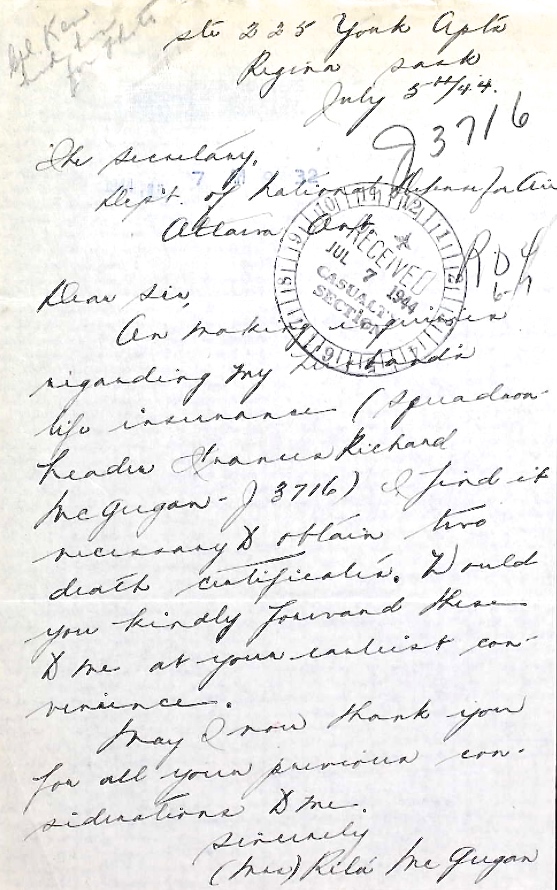 ste 225 York Apts
Regina Sask
July 5th/44.
J3716
The Secretary,
Dept. of National Defense for Air
Ottawa Ont.
7 32
RECEIVED
JUL 7 1944
CASUALTY
SECTION
Dear Sir,
On making inquiries
regarding my husband's
life insurance (Squadron-
Leader Francis Richard
McGugan - J3716) I find it
necessary to obtain two
death certificates. Would
you kindly forward these
to me at your earliest con-
venience.
May I now thank you
for all your previous con-
siderations to me.
Sincerely
(Mrs) Rita McGugan